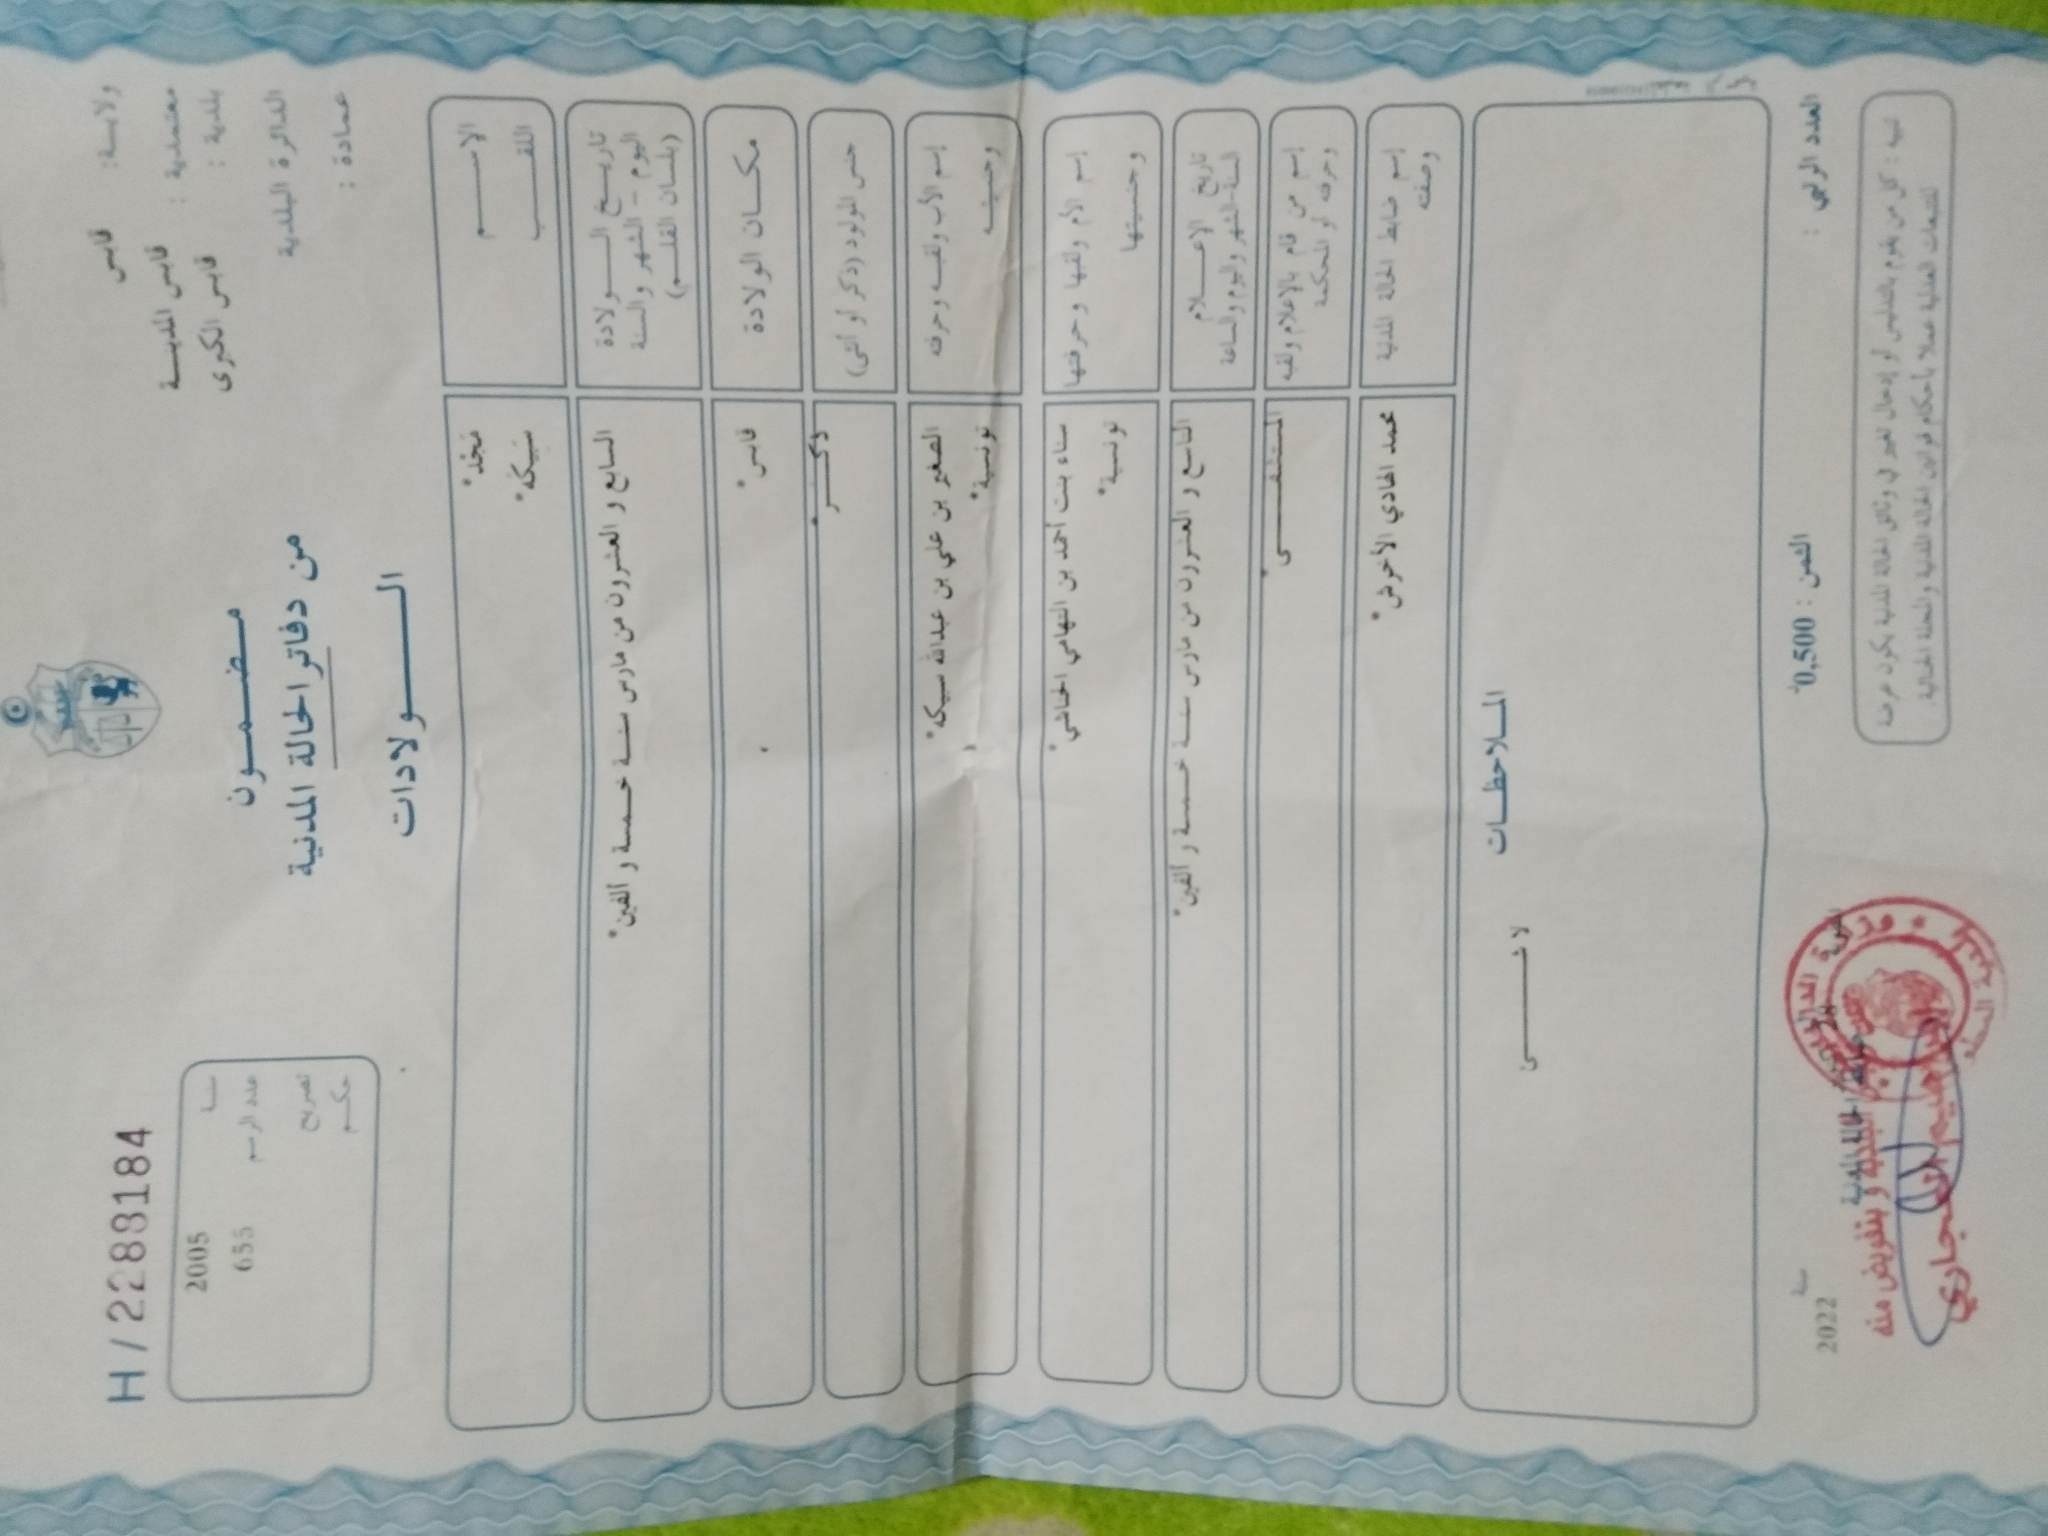 ولايـــة: قابس
معتمدية : قابس المدينـــة
بلدية : قابس الكبرى
الدائرة البلدية
عمادة :
مـضـمــون
من دفاتر الحالة المدنية
الـــــولادات
H / 2288184
سنــة 2005
عدد الرسم 655
تصريح
حكــم
الإســـــم
اللقـــــب
سبيكه*
تاريـــخ الــــولادة
اليوم – الشهر والسنة
(بلسان القلـــم)
السابع و العشرون من مارس سنــة خـمسة و ألفين*
مكـــان الولادة
قابس*
جنس المولود (ذكر أو أنثى)
ذكـــــر*
إسم الأب ولقبـــه وحرفته
وجنسيتـــه
الصغير بن علي بن عبدالله سبيكه*
تونسية*
إسم الأم ولقبها وحرفتها
وجنسيتها
سناء بنت أحمد بن التهامي
تونسية*
تاريخ الإعـــلام
السنة-الشهر واليوم والساعة
التاسع و العشرون من مارس سنــة خـمسة و ألفين*
إسم من قام بالإعلام ولقبه
وحرفته أو المحكمة
المستشفـــــــى*
إسم ضابط الحالة المدنية
وصفته
محمد الهادي الأخرش*
الملاحظـــات
لا شـــــــيئ
العدد الرتبي :
الثمن : 0,500د
سنة 2022
تنبيه : كل من يقوم بالتدليس أو إدخال تغيير في وثائق الحالة المدنية يكون عرضة
للتتبعات العدلية عملا بأحكام قوانين الحالة المدنية والمجلة الجنائية.